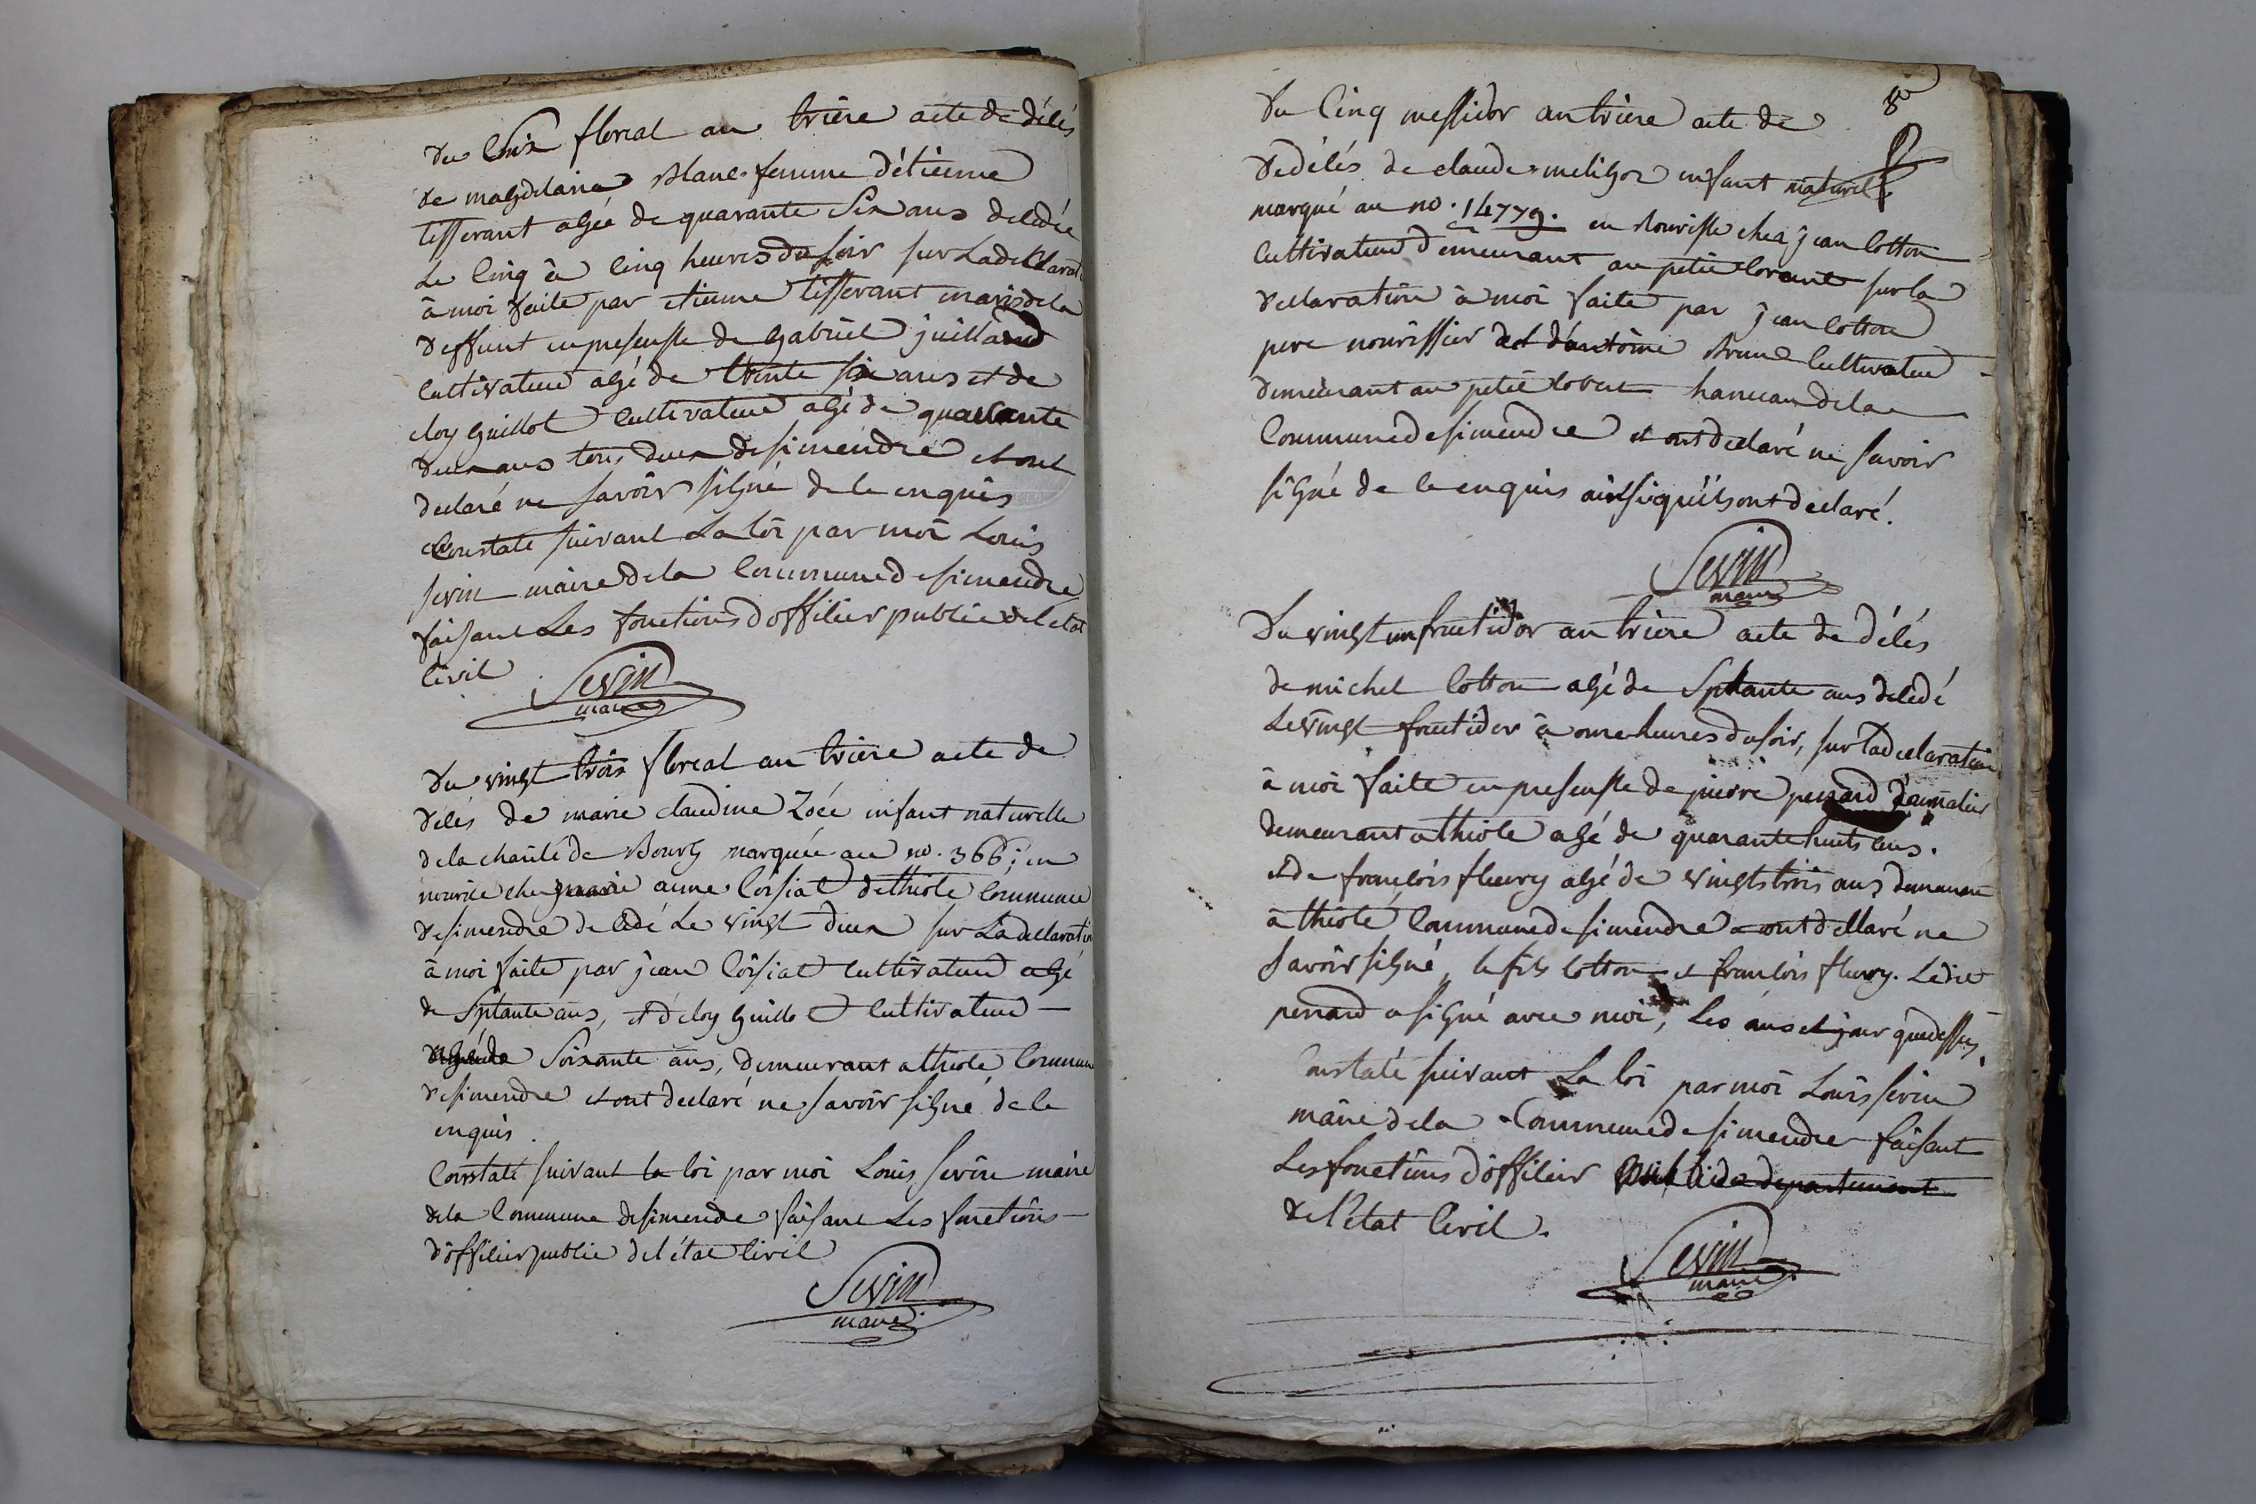 Du Six floreal an triere acte de délés
de magdelaine Blanc femme d'étienne
tisserant agée de quarante Six ans deledée
Le Cinq à Cinq heures du soir sur Ladeclarat
à moi faite par etienne tisserant maris dela
deffunt en presensse de gabriel juillard
Cultivateur agé de trente six ans et de
eloy guillot Cultivateur agé de quarante
deux ans tous deux desimendre et ont
declaré ne savoir signé dele enquis
Constaté suivant La loi par moi Louis
sevin maire dela Commune desimendre
faisant Les fonctions d'offilier public del etat
Civil
Sevin
maire
Du vingt trois floreal an triere acte de
délés de marie claudine Zoée enfant naturelle
dela charité de Bourg marquée au no. 366; en
nourice chez marie anne Coisiat dethiole Commune
desimendre deledé Le vingt deux sur Ladeclaration
à moi faite par jean Coisiat cultivateur agé
de Sptante ans, et d'eloy guillot Cultivateur
Soixante ans, demeurant a thiole Commune
desimendre et ont declaré ne savoir signé dele
enquis.
Constaté suivant la loi par moi Louis sevin maire
dela Commune desimendre faisant Les fonctions
d'offilier public del état Civil
Sevin
maire
8e
Du Cinq messidor an triere acte de
dedélés de claude melihor enfant naturel
marqué au no. 14779. en nourisse chez jean Cotton
Cultivateur demeurant au petit Corant sur la
declaration à moi faite par jean Cotton
pere nourissier et d'antoine Brunel Cultivateur
demeurant au petit hameau dela
Commune desimendre et ont declaré ne savoir
signé de le enquis ainsi qu'ils ont declaré.
Sevin
maire
Du vingt un fructidor an triere acte de délés
de michel Cotton agé de Sptante ans deledé
Le vingt fructidor à onze heures du soir, sur ladeclaration
à moi faite en presensse de pierre penard
demeurant a thiole agé de quarante huits ans.
et de françois fleury agé de vingts trois ans demeurant
à thiole Commune de simendre ont declaré ne
savoir signé, le fils Cotton et françois fleury. Ledit
penard a signé avec moi, Les ans et jour que dessus,
Constaté suivant La loi par moi Louis sevin
maire dela Commune de simendre faisant
Les fonctions d'offilier public departement
de l'état Civil.
Sevin
maire